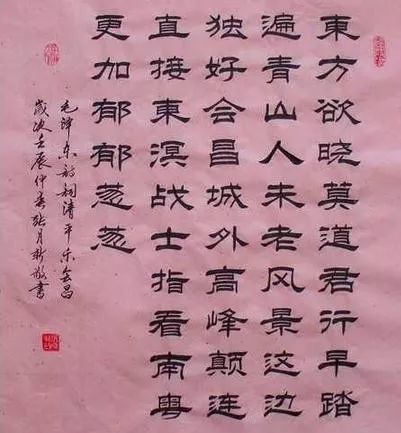 東方欲晓莫道君行早踏
遍青山人未老风景这边
独好会昌城外高峰颠连
直接東溟战士指看南粤
更加郁郁葱葱
毛泽东词清平乐会昌
岁次壬辰仲春张月敬书